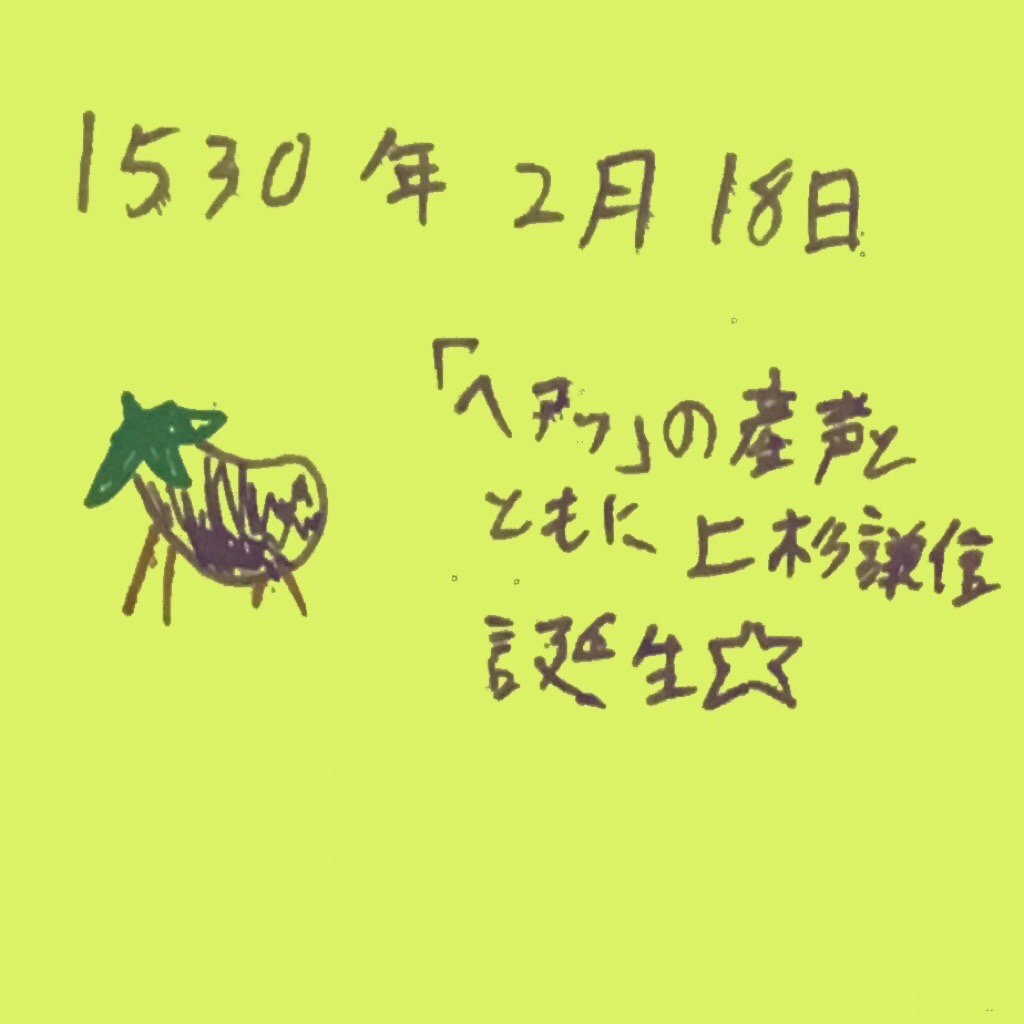 1530年 2月 18日
「ヘアッ」の産声と
ともに 上杉謙信
誕生☆